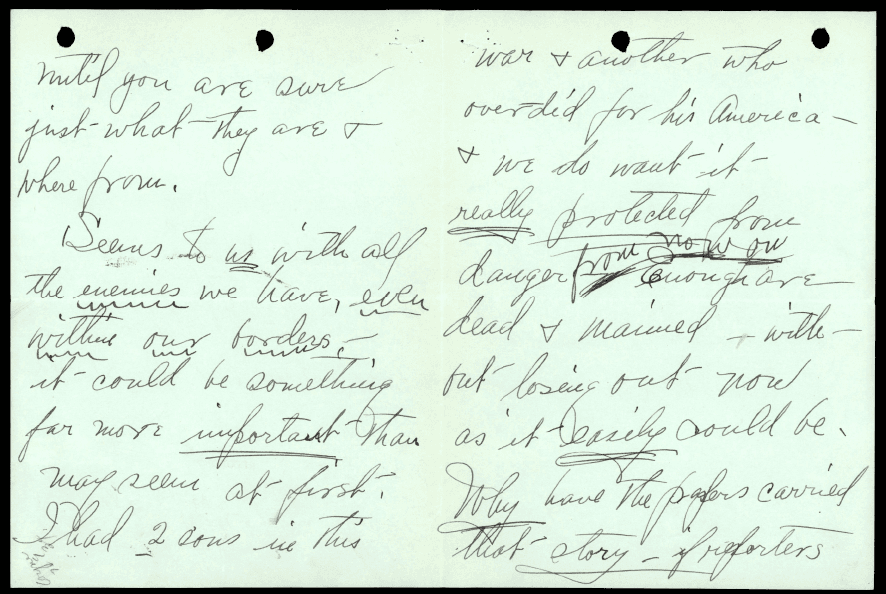 until you are sure
just what they are &
where from.
Seems to us with all
the enemies we have, even
within our borders, —
it could be something
far more important than
may seem at first.
I had 2 sons in this
war & another who
overdid for his America —
& we do want it
really protected from
danger from now on
Enough are
dead & maimed — with-
out losing out now
as it easily could be.
Why have the papers carried
that story — if reporters